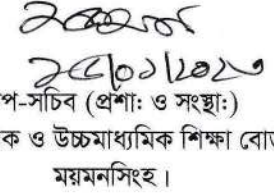 ২৫/০১/২০২৩
প-সচিব (প্রশা: ও সংস্থা:)
ক ও উচ্চমাধ্যমিক শিক্ষা বোর্ড
ময়মনসিংহ।